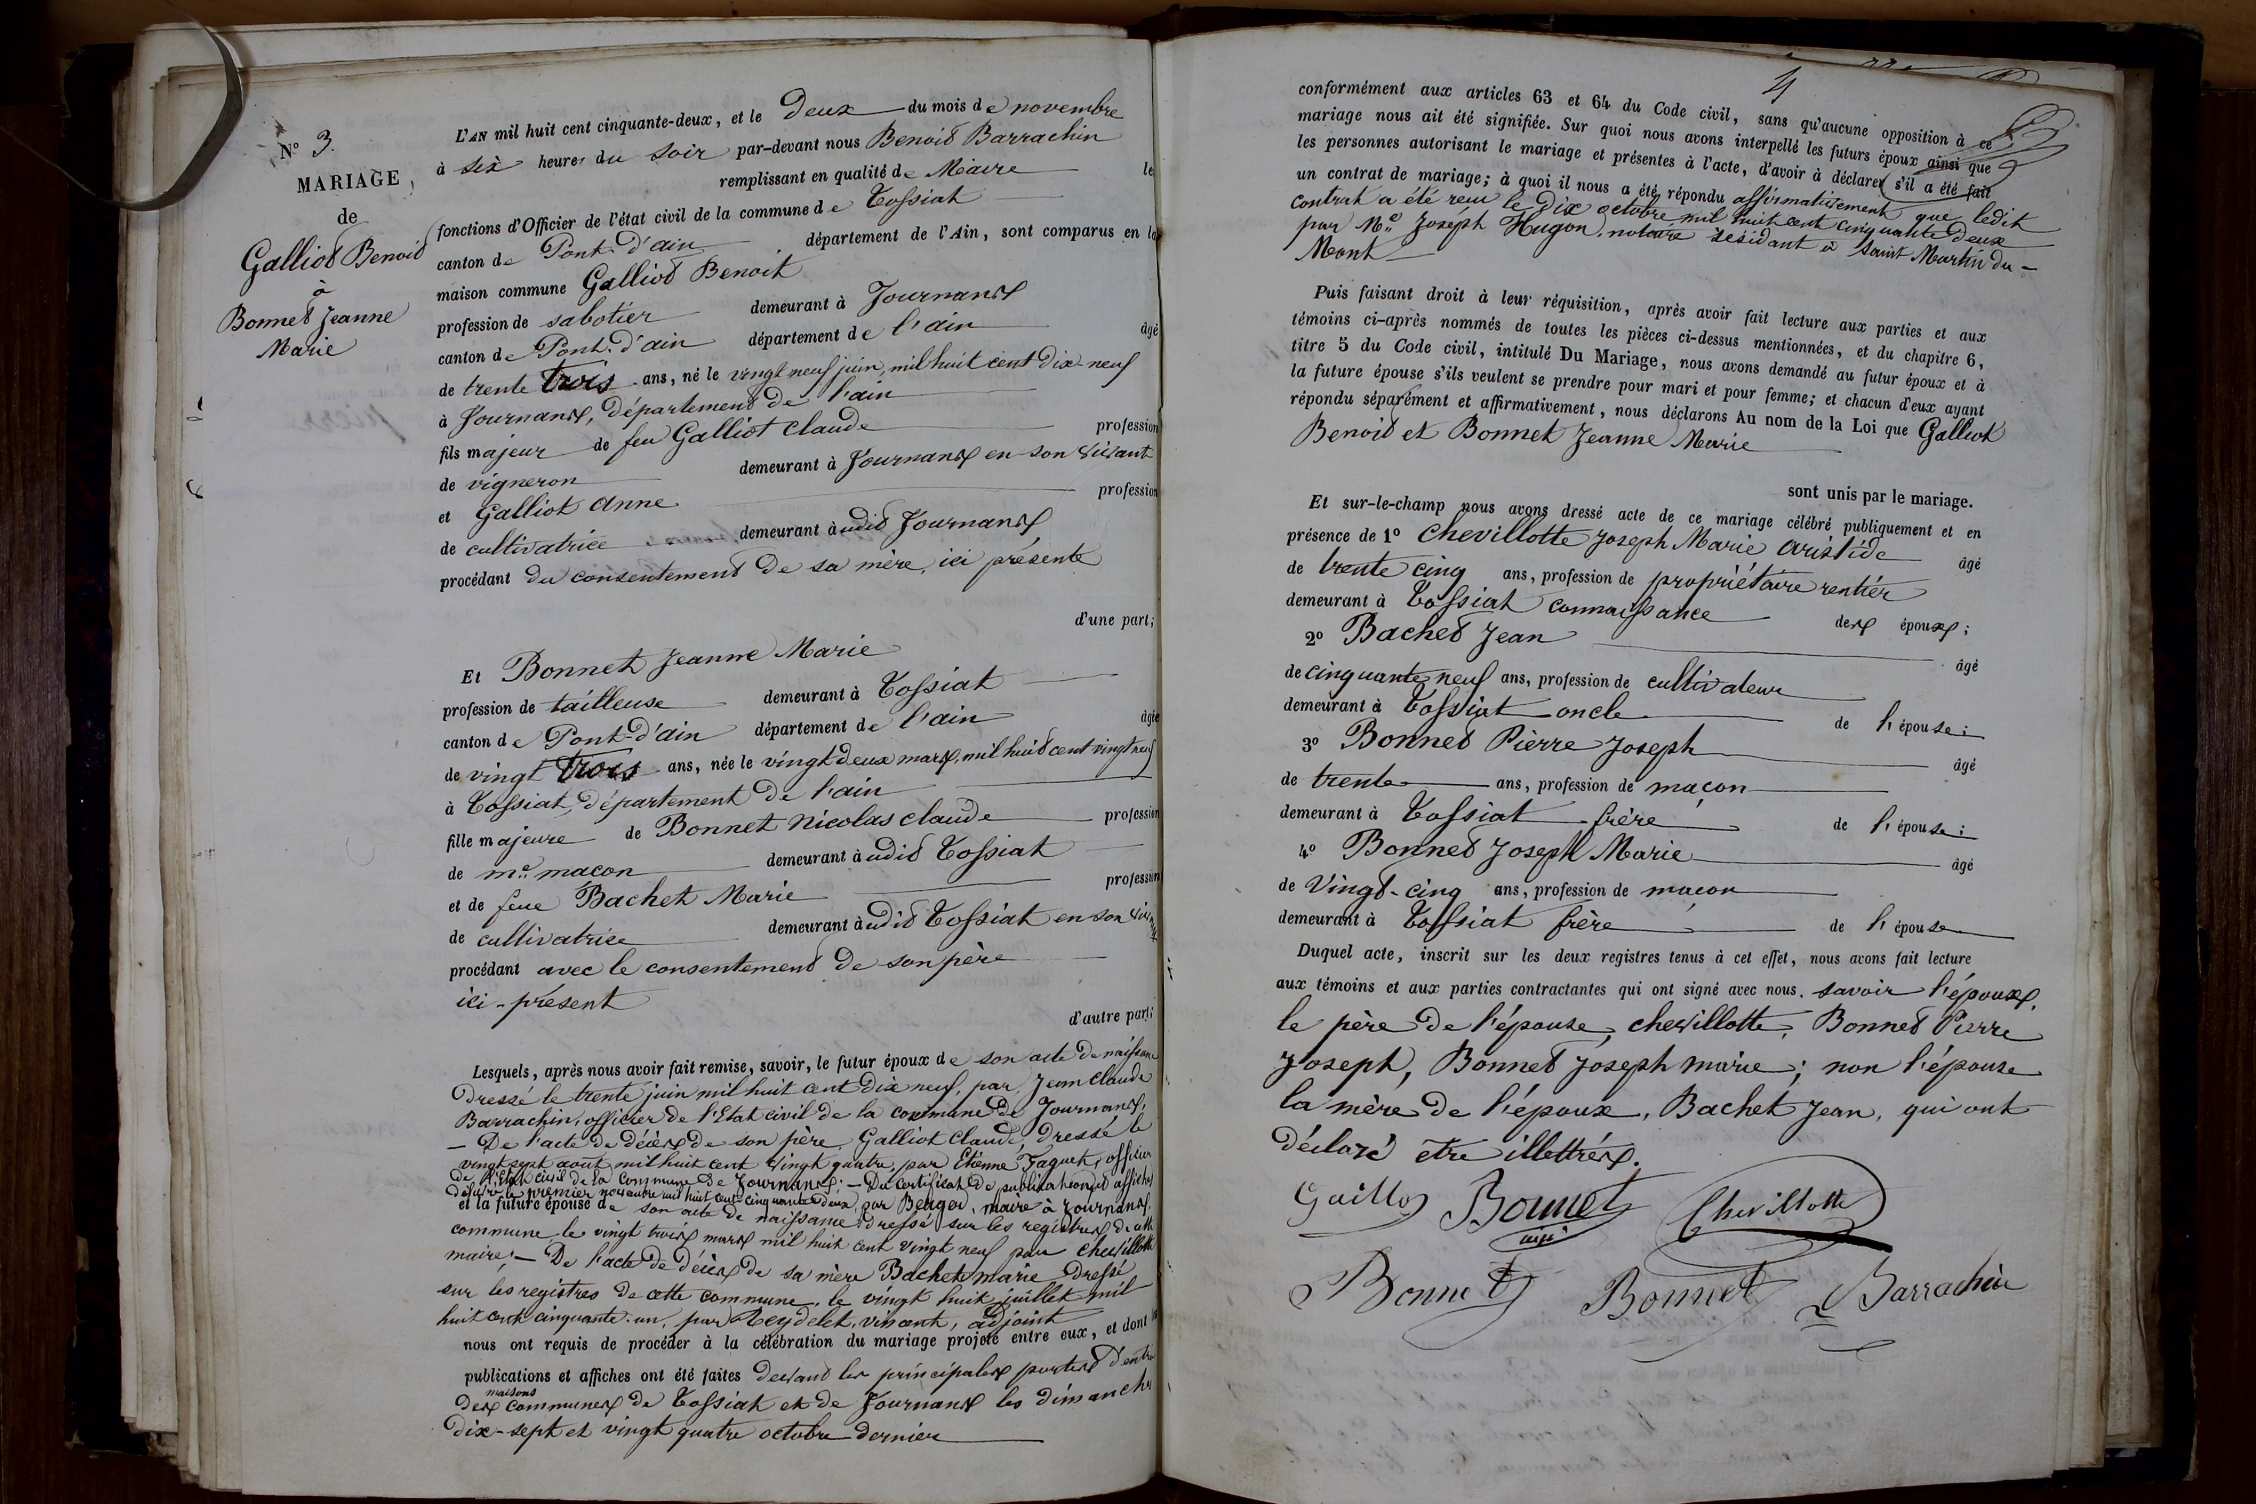 N° 3.
MARIAGE
de
Galliot Benoit
à
Bonnet Jeanne
Marie
L'AN mil huit cent cinquante-deux, et le Deux du mois de novembre
à six heures du soir par-devant nous Benoit Barrachin
remplissant en qualité de Maire les
fonctions d'Officier de l'état civil de la commune de Tossiat
canton de Pont-d'ain département de l'Ain, sont comparus en la
maison commune Galliot Benoit
profession de sabotier demeurant à Journans
canton de Pont-d'ain département de l'ain âgé
de trente trois ans, né le vingt neuf juin, mil huit cent dix neuf
à Journans, département de l'ain
fils majeur de feu Galliot Claude profession
de vigneron demeurant à Journans en son vivant
et Galliot Anne profession
de cultivatrice demeurant àudit Journans
procédant du consentement de sa mère, ici présente
d'une part;
Et Bonnet Jeanne Marie
profession de tailleuse demeurant à Tossiat
canton de Pont-d'ain département de l'ain âgée
de vingt trois ans, née le vingt deux mars, mil huit cent vingt neuf
à Tossiat, département de l'ain
fille majeure de Bonnet Nicolas Claude profession
de me maçon demeurant àudit Tossiat
et de feue Bachet Marie profession
de cultivatrice demeurant àudit Tossiat en son vivant
procédant avec le consentement de son père
ici-présent
d'autre part;
Lesquels, après nous avoir fait remise, savoir, le futur époux de son acte de naissance
dressé le trente juin mil huit cent dix neuf, par Jean Claude
Barrachin, officier de l'Etat civil de la commune de Journans,
- De l'acte de décès de son père Galliot Claude, dressé le
vingt sept aout mil huit cent vingt quatre, par Etienne Faguet, officier
de l'Etat civil de la commune de Journans. - Du certificat de publication et affiches
délivré le premier novembre mil huit cent cinquante deux, par Berger, maire à Journans,
et la future épouse de son acte de naissance dressé sur les registres de cette
commune le vingt trois mars mil huit cent vingt neuf par Chevillotte
maire; - De l'acte de décès de sa mère Bachet marie dressé
sur les registres de cette commune, le vingt huit juillet mil
huit cent cinquante-un, par Reydelet, vincent, adjoint
nous ont requis de procéder à la célébration du mariage projeté entre eux, et dont les
publications et affiches ont été faites devant les principales portes d'entrée
des maisons communes de Tossiat et de Journans les dimanches
dix-sept et vingt quatre octobre dernier
4
conformément aux articles 63 et 64 du Code civil, sans qu'aucune opposition à ce
mariage nous ait été signifiée. Sur quoi nous avons interpellé les futurs époux ainsi que
les personnes autorisant le mariage et présentes à l'acte, d'avoir à déclarer s'il a été fait
un contrat de mariage; à quoi il nous a été répondu affirmativement que ledit
contrat a été reçu le Dix octobre mil huit cent cinquante deux
par Me Joseph Hugon, notaire résidant à Saint Martin du-
Mont
Puis faisant droit à leur réquisition, après avoir fait lecture aux parties et aux
témoins ci-après nommés de toutes les pièces ci-dessus mentionnées, et du chapitre 6,
titre 5 du Code civil, intitulé Du Mariage, nous avons demandé au futur époux et à
la future épouse s'ils veulent se prendre pour mari et pour femme; et chacun d'eux ayant
répondu séparément et affirmativement, nous déclarons Au nom de la Loi que Galliot
Benoit et Bonnet Jeanne Marie
sont unis par le mariage.
Et sur-le-champ nous avons dressé acte de ce mariage célébré publiquement et en
présence de 1° Chevillotte Joseph Marie Aristide âgé
de trente cinq ans, profession de propriétaire rentier
demeurant à Tossiat connaissance des époux;
2° Bachet Jean âgé
de cinquante neuf ans, profession de cultivateur
demeurant à Tossiat oncle de l'épouse;
3° Bonnet Pierre Joseph âgé
de trente ans, profession de maçon
demeurant à Tossiat frère de l'épouse;
4° Bonnet Joseph Marie âgé
de Vingt-cinq ans, profession de maçon
demeurant à Tossiat frère de l'épouse
Duquel acte, inscrit sur les deux registres tenus à cet effet, nous avons fait lecture
aux témoins et aux parties contractantes qui ont signé avec nous. savoir l'époux,
le père de l'épouse, chevillotte, Bonnet Pierre
Joseph, Bonnet Joseph marie; non l'épouse
la mère de l'époux, Bachet Jean, qui ont
déclaré etre illettrés.
Gaillot Bonnet Chevillotte
Bonnet Bonnet Barrachin